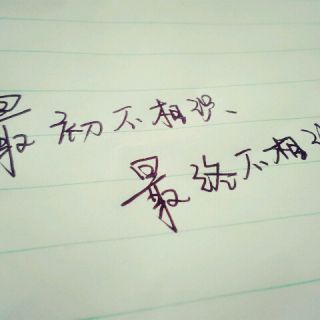 最初不相识、
最终不相识